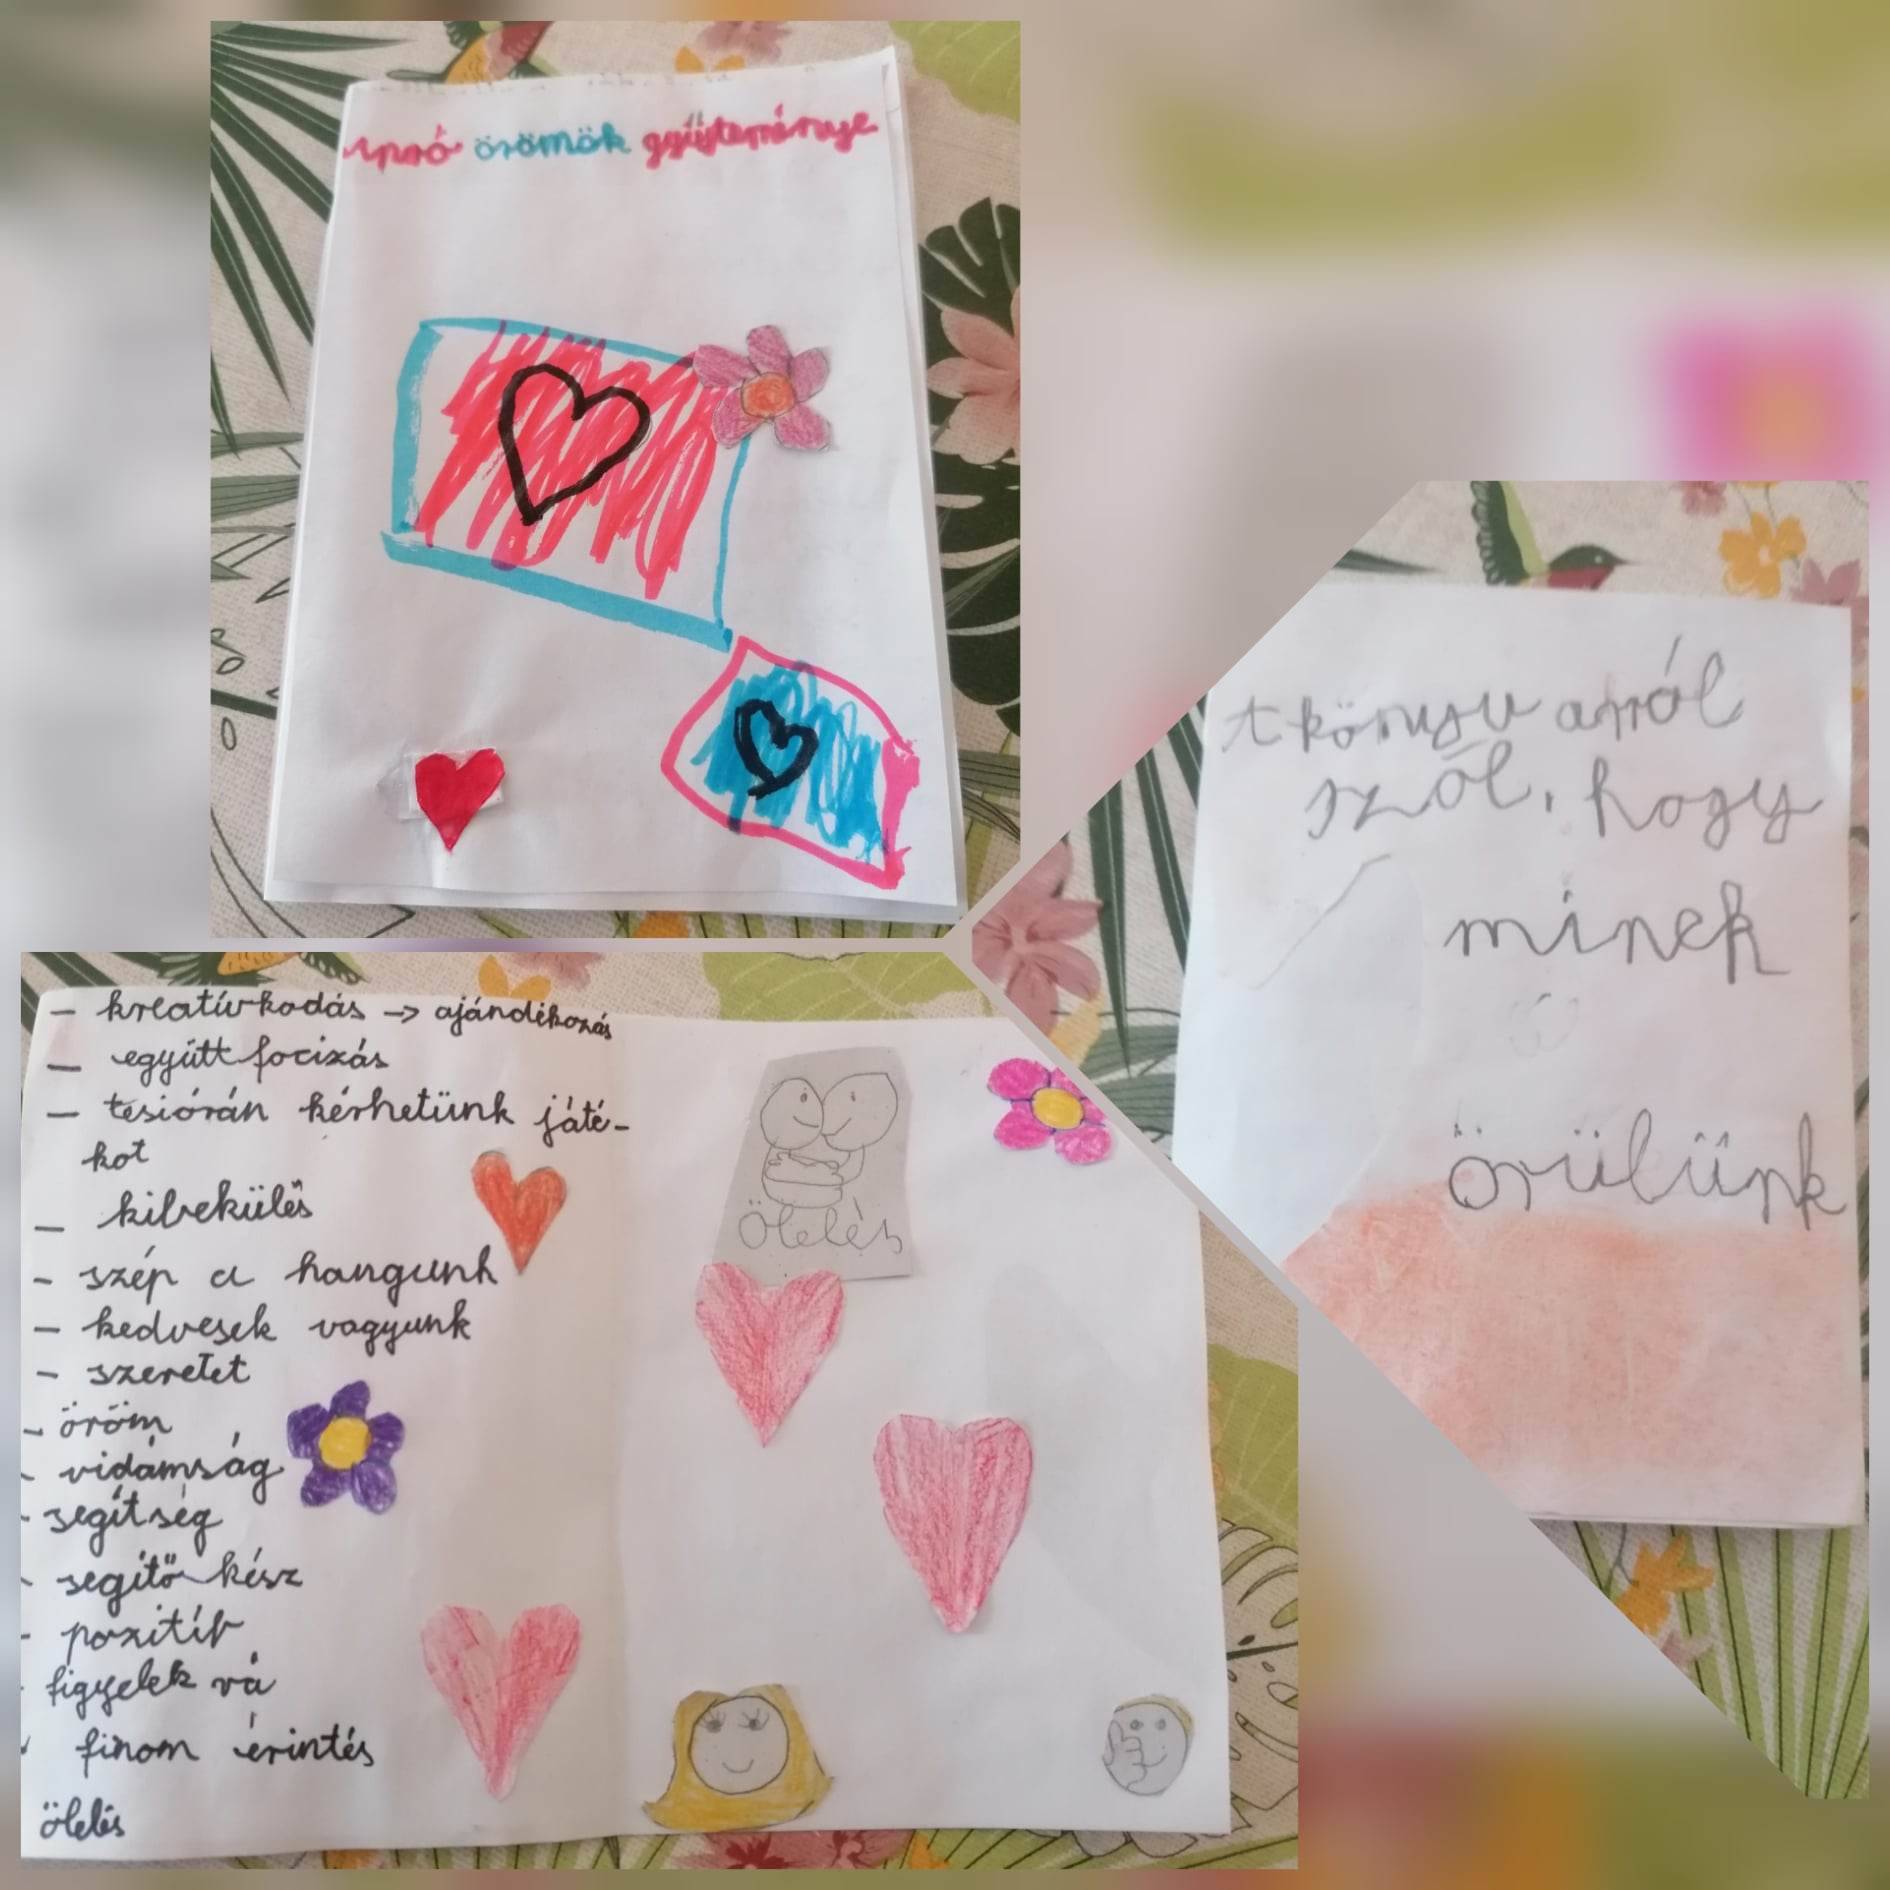 Apró örömök gyűjteménye
A könyv arról
szól, hogy
minek
örülünk
– kreatívkodás → ajándékozás
– együtt focizás
– tesiórán kérhetünk játé-
kot
– kibékülés
– szép a hangunk
– kedvesek vagyunk
– szeretet
– öröm
– vidámság
- segítség
- segítő kész
- pozitív
- figyelek rá
- finom érintés
ölelés
Ölelés